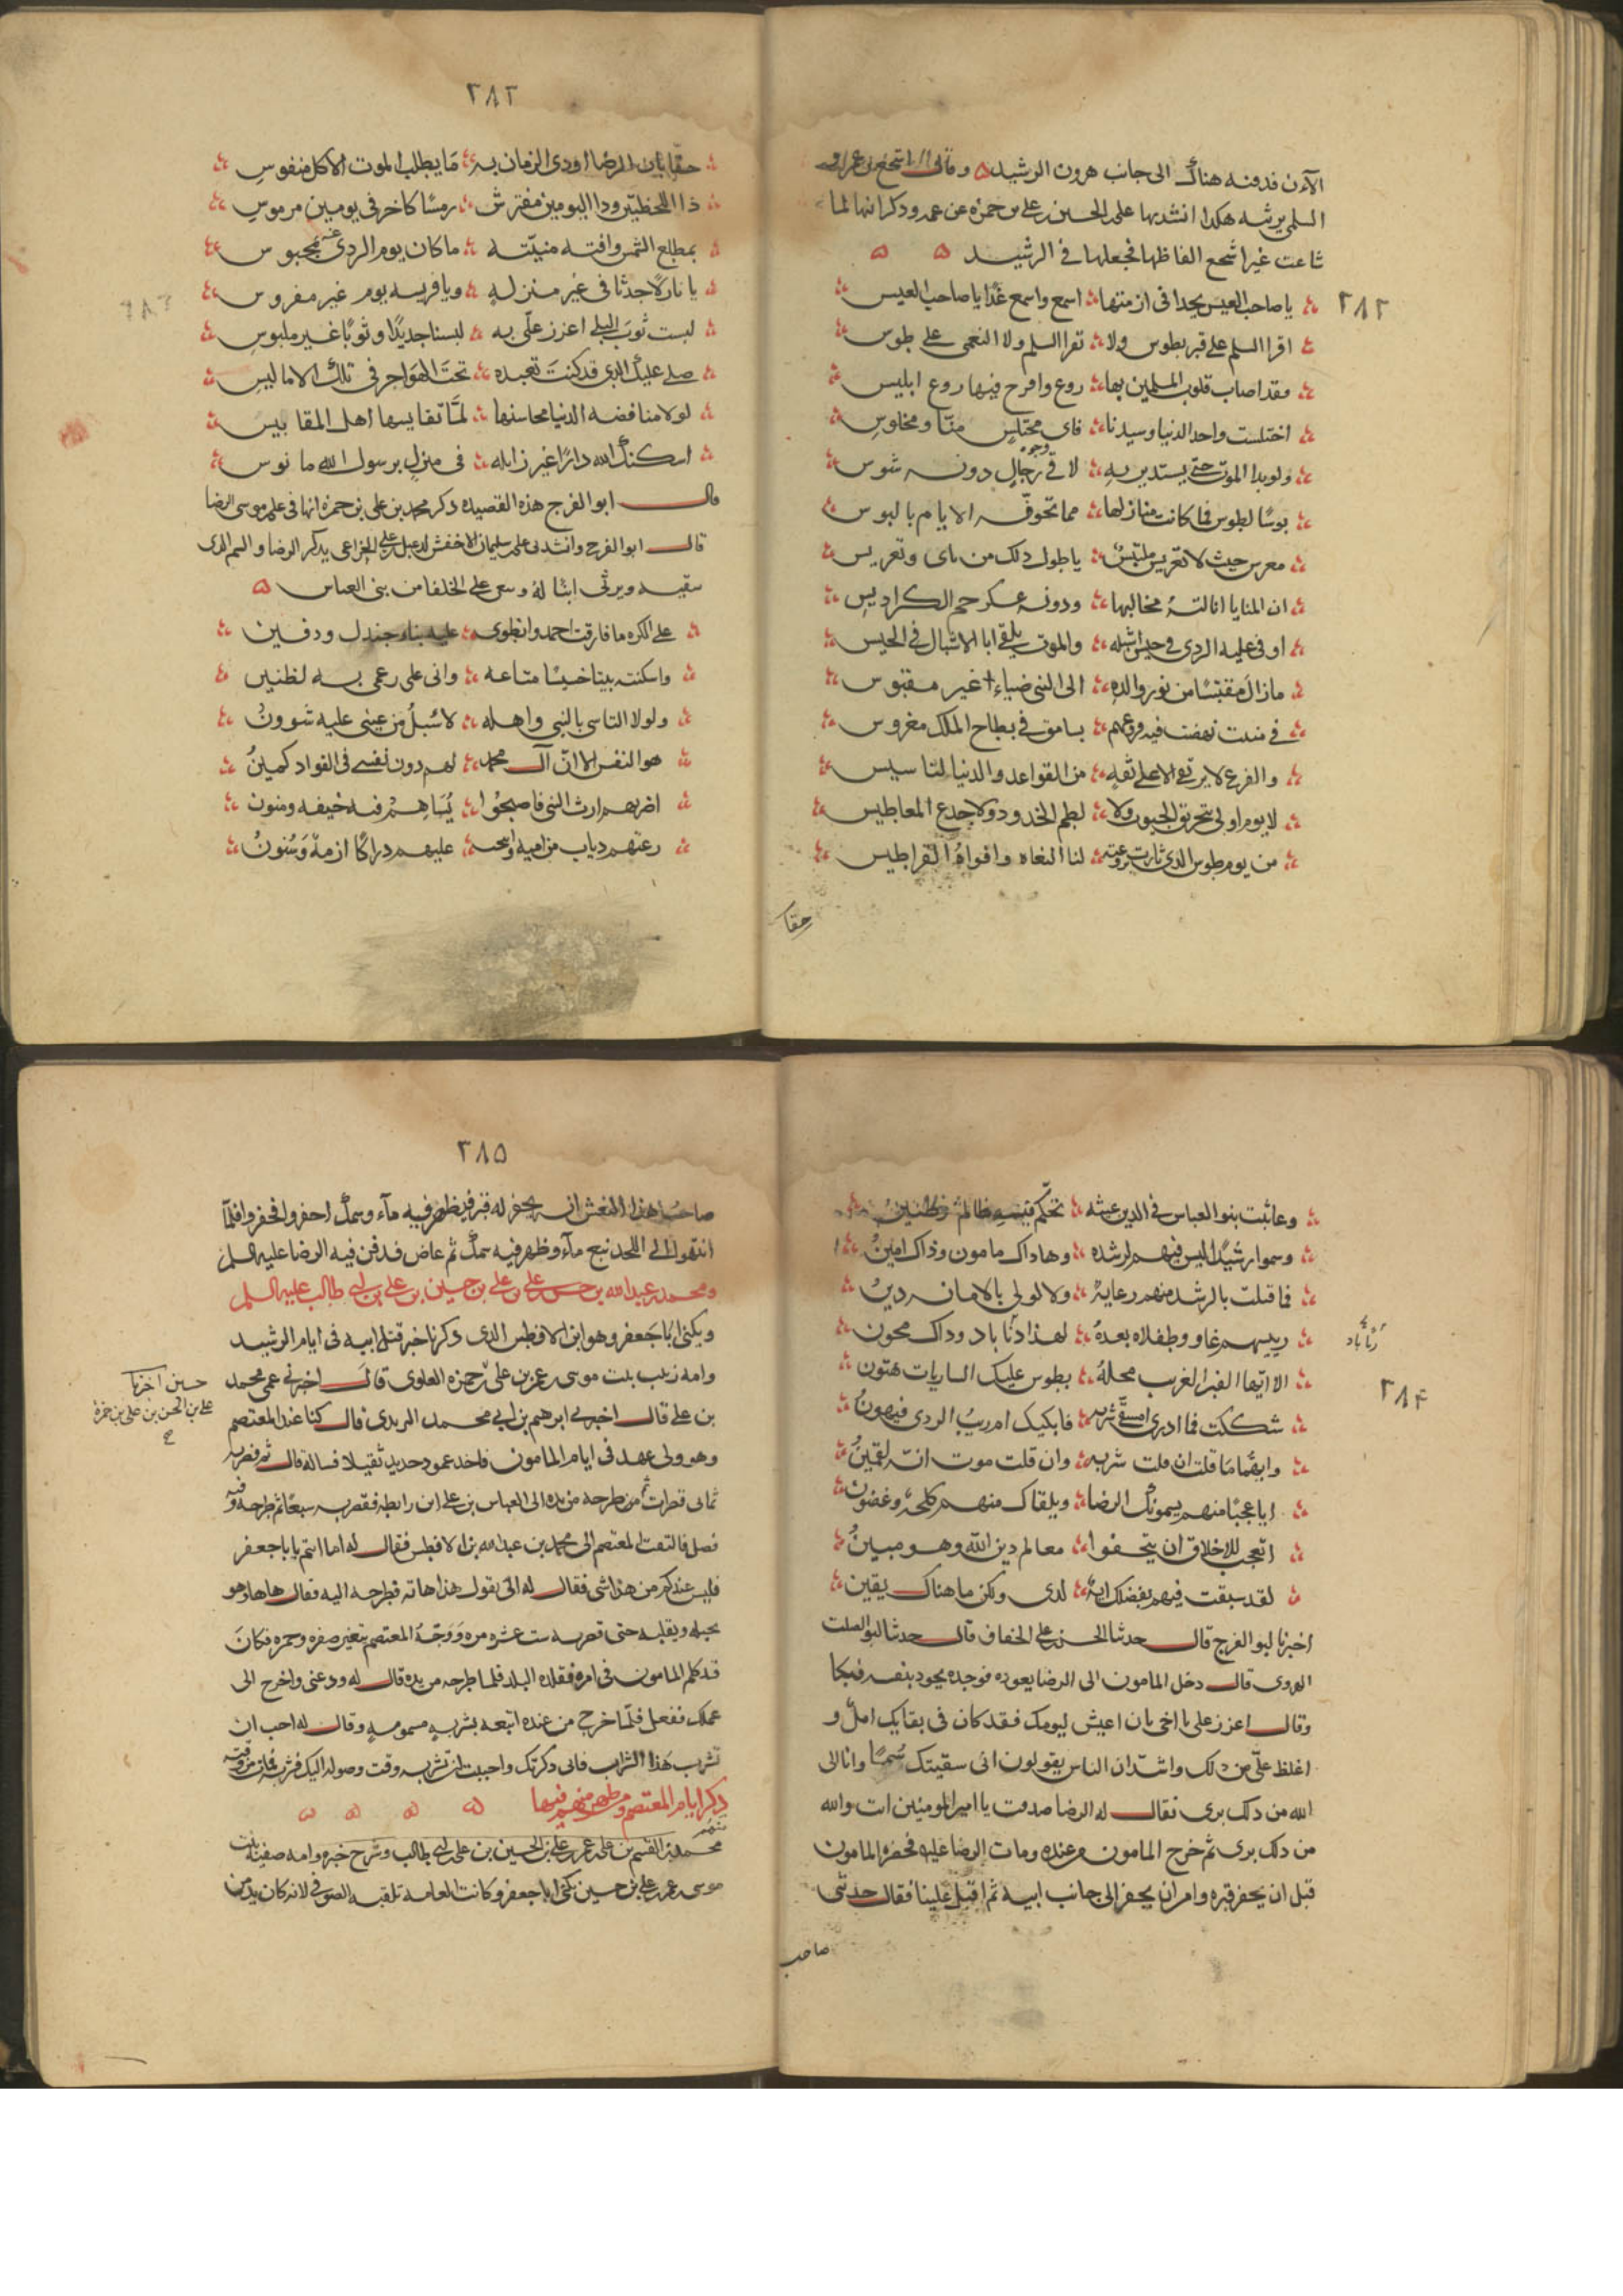 الآن فدفنه هناك الى جانب هرون الرشيد ه وقال اشجع بن عمرو
السلمى يرثيه هكذا انشدنيها على بن الحسين بن على بن حمزه عن عمه وذكر انها لما
شاعت غير اشجع الفاظها فجعلها فى الرشيد ه ه
٢٨٢
يا صاحب العيس يحدا فى ازمتها اسمع واسمع غدا يا صاحب العيس
اقرا السلم على قبر بطوس ولا تقرا السلم ولا النعمى على طوس
فقد اصاب قلوب المسلمين بها روع وافرخ فيها روع ابليس
اختلست واحد الدنيا وسيدنا فاى مختلس منا ومخلوس
ولو بدا الموت حتى يستدير به لاقى وجوه رجال دونه شوس
بوسا لطوس فما كانت منازلها مما تخوفه الايام بالبوس
معرس حيث لا تعريس ملتبس يا طول ذلك من ناى وتعريس
ان المنايا انالته مخالبها ودونه عسكر جم الكراديس
اوفى عليه الردى فى خيس اشبله والموت يلقى ابا الاشبال فى الخيس
ما زال مقتبسا من نور والده الى النبى ضياء غير مقبوس
فى منبت نهضت فيه فروعهم بسامق فى بطاح الملك مغروس
والفرع لا يرتقى الا على ثقة من القواعد والدنيا لتاسيس
لا يوم اولى بتخريق الجيوب ولا لطم الخدود ولا جدع المعاطيس
من يوم طوس الذى ثارت بروعته لنا النعاه وافواه القراطيس
حقا
٢٨٣
حقا بان الرضا اودى الزمان به ما يطلب الموت الا كل منفوس
ذا اللحظتين وذا اليومين مفترش رمسا كاخر فى يومين مرموس
بمطلع الشمس وافته منيته ما كان يوم الردى عنه بمحبوس
يا نازلا جدثا فى غير منزله ويا فريسه يوم غير مفروس
لبست ثوب البلى اعزز على به لبسا جديدا وثوبا غير ملبوس
صلى عليك الذى قد كنت تعبده تحت الهواجر فى تلك الاماليس
لولا مناقضه الدنيا محاسنها لما تقايسها اهل المقاييس
اسكنك الله دارا غير زايله فى منزل برسول الله مانوس
قال ابو الفرج هذه القصيده ذكر محمد بن على بن حمزه انها فى على بن موسى الرضا
قال ابو الفرج وانشدنى على بن سليمان الاخفش لدعبل بن على الخزاعى يذكر الرضا والسم الذى
سقيه ويرثى ابنا له وينعى على الخلفا من بنى العباس ه
على الكره ما فارقت احمد وانطوى عليه بناء جندل ودفين
واسكنته بيتا خسيسا متاعه وانى على رغمى به لظنين
ولولا التاسى بالنبى واهله لاسبل من عينى عليه شوون
هو النفس الا ان آل محمد لهم دون نفسى فى الفواد كمين
اضر بهم ارث النبى فاصبحوا يساهم فيه خيفه ومنون
رعتهم ذياب من اميه وانتحت عليهم دراكا ازمة وسنون
وعاثت بنو العباس فى الدين عيثه تحكم فيه ظالم وظنين
وسموا رشيدا ليس فيهم لرشده وها ذاك مامون وذاك امين
فما قبلت بالرشد منهم رعاية ولا لولى بالامانه دين
رييسهم غاو وطفلاه بعده لهذا دنا باد وذاك مجون
الا ايها القبر الغريب محله بطوس عليك الساريات هتون
٢٨۴
شككت فما ادرى امسقى شربه فابكيك ام ريب الردى فيهون
وايهما ما قلت ان قلت شربه وان قلت موت انه لقمين
ايا عجبا منهم يسمونك الرضا ويلقاك منهم كلحة وغضون
اتعجب للاخلاق ان يتحيفوا معالم دين الله وهو مبين
لقد سبقت فيهم بفضلك اية لدى ولكن ما هناك يقين
اخبرنا ابو الفرج قال حدثنا الحسن بن على الخفاف قال حدثنا ابو الصلت
الهروى قال دخل المامون الى الرضا يعوده فوجده يجود بنفسه فبكا
وقال اعزز على يا اخى بان اعيش ليومك فقد كان فى بقايك امل و
اغلظ على من ذلك واشد ان الناس يقولون انى سقيتك سما وانا الى
الله من ذلك برى فقال له الرضا صدقت يا امير المومنين انت والله
من ذلك برى ثم خرج المامون من عنده ومات الرضا عليه فحضره المامون
قبل ان يحفر قبره وامر ان يحفر الى جانب ابيه ثم اقبل علينا فقال حدثنى
صاحب
٢٨۵
صاحب هذا النعش انه يحفر له قبر فيظهر فيه مآء وسمك احفروا فحفروا فلما
انتهوا الى اللحد نبع مآء وظهر فيه سمك ثم غاض فدفن فيه الرضا عليه السلم
ومحمد بن عبد الله بن حسن بن على بن على بن حسين بن على بن ابى طالب عليه السلم
ويكنى ابا جعفر وهو ابن الافطس الذى ذكرنا خبر قتل ابيه فى ايام الرشيد
وامه زينب بنت موسى بن عمر بن على بن حمزه العلوى قال اخبرنى عمى محمد
حسين اخبرنا
على بن الحسن بن على بن حمزة
بن على قال اخبرنى ابرهيم بن ابى محمد اليزيدى قال كنا عند المعتصم
وهو ولى عهد فى ايام المامون فاخذ عمود حديد ثقيلا فساله قال ثم فضربه
ثمانى ضربات ثم طرحه من يده الى العباس بن على ابن رابطه فضربه سبعا ثم طرحه وفيه
فضل فالتفت المعتصم الى محمد بن عبد الله بن الافطس فقال له اما انتم يا با جعفر
فليس عندكم من هذا شى فقال له الى تقول هذا هاته فطرحه اليه فقال ها هاذ هو
يحيله ويقلبه حتى ضربه ست عشره مره ووجه المعتصم يتغير صفره وحمره فكان
قد كلم المامون فى امره فقلده البلد فلما طرحه من يده قال له ودعنى واخرج الى
عملك ففعل فلما خرج من عنده اتبعه بشربه مسمومه وقال له احب ان
تشرب هذا الشراب فانى ذكرتك واحببت ان تشربه وقت وصوله اليك فشربه فمات من وقته
ذكر ايام المعتصم ومن ظهر منهم فيها ه ه ه ه
محمد بن القسم بن على بن عمر بن على بن الحسين بن على بن ابى طالب وشرح خبره وامه صفيه بنت
موسى بن عمر بن على بن حسين يكنى ابا جعفر وكانت العامه تلقبه الصوفى لانه كان يدمن